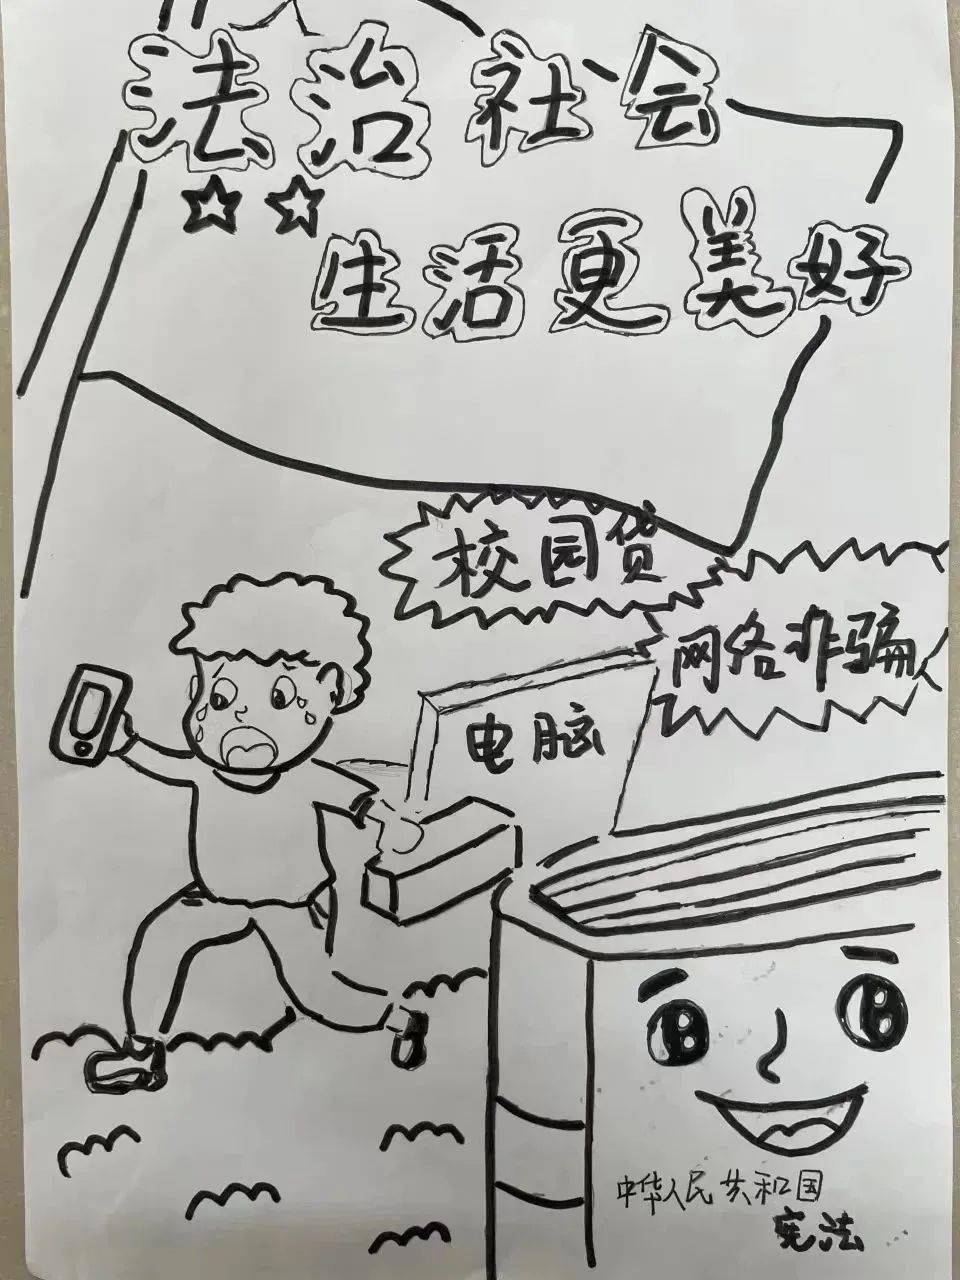 法治社会
生活更美好
校园贷
网络诈骗
电脑
中华人民共和国
宪法